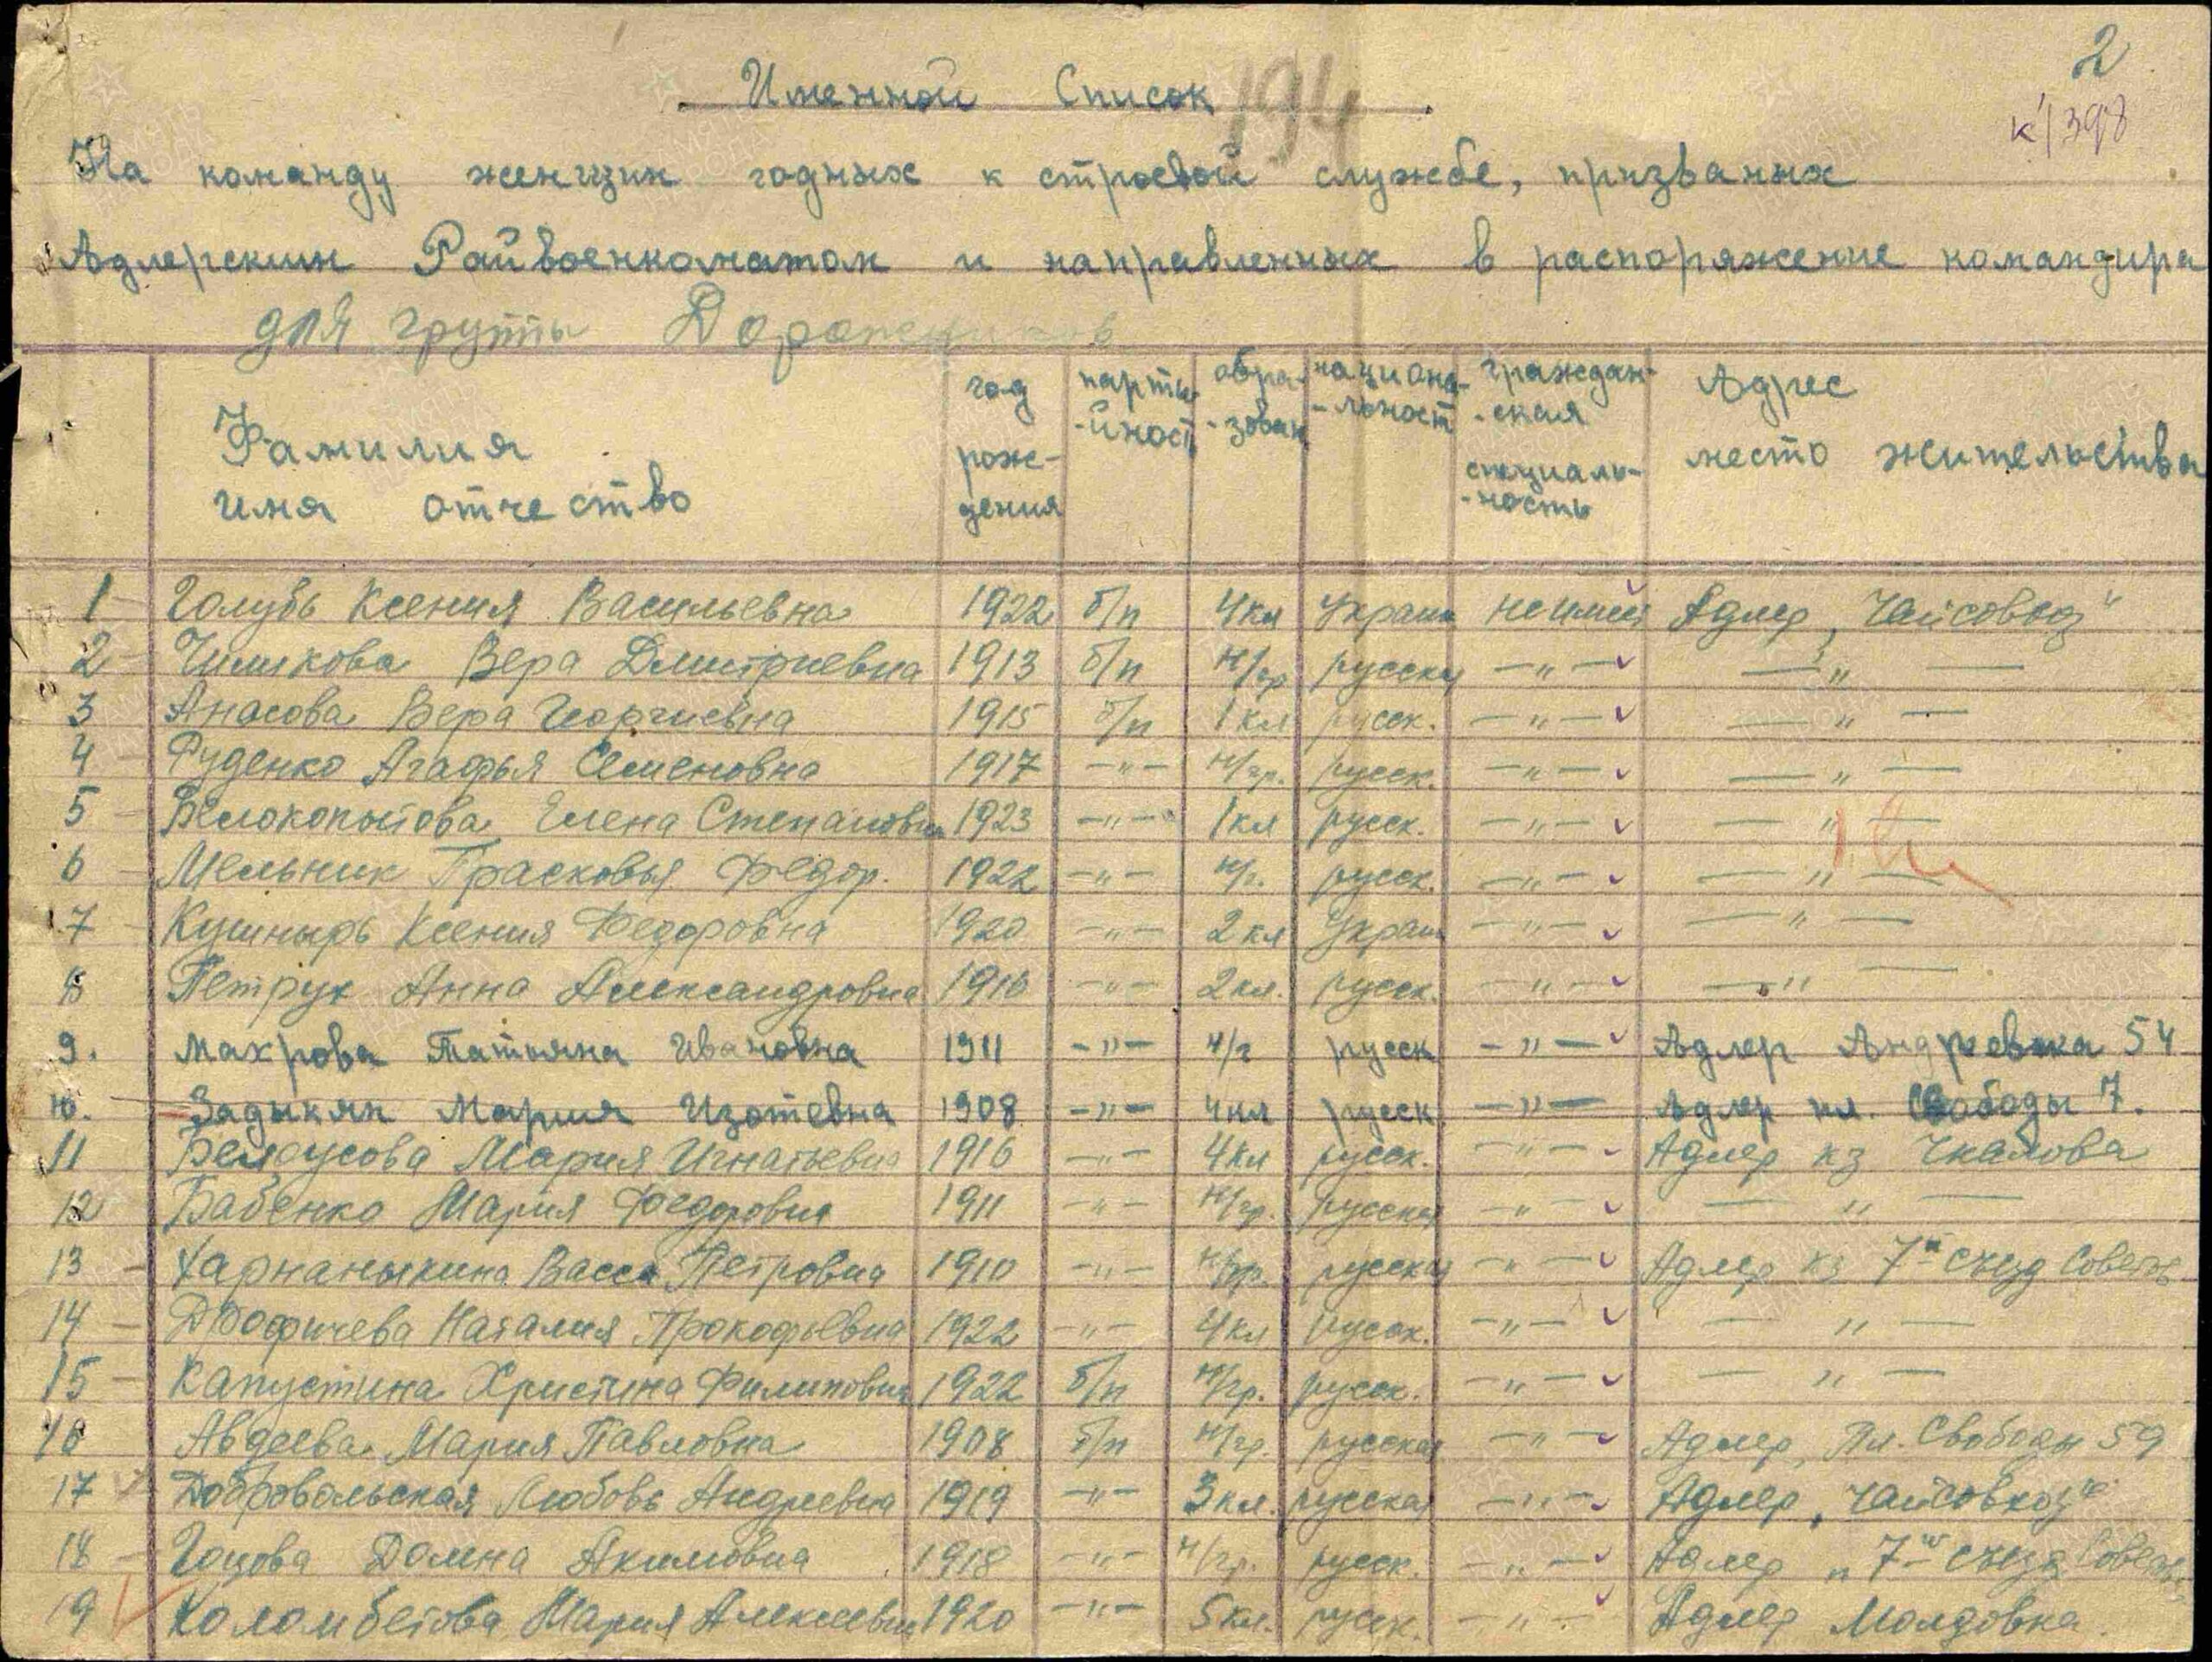 2
к/1398
194
Именной Список
На команду женщин годных к строевой службе, призванных
Адлерским Райвоенкоматом и направленных в распоряжение командира
для группы
Фамилия имя отчество | год рож-дения | парти-йност | обра-зован | национа-льност | граждан-ская специаль-ность | Адрес место жительства
1 Голубь Ксения Васильевна 1922 б/п 4кл Украин не имеет Адлер, Чайсовхоз"
2 Чишкова Вера Дмитриевна 1913 б/п н/гр русск -"- -"-
3 Анасова Вера Георгиевна 1915 б/п 1кл русск. -"- -"-
4 Руденко Агафья Семеновна 1917 -"- н/гр. русск. -"- -"-
5 Белокопытова Елена Степановна 1923 -"- 1кл русск. -"- -"-
6 Мельник Прасковья Федор. 1922 -"- н/г. русск. -"- -"-
7 Кушнырь Ксения Федоровна 1920 -"- 2кл Украин -"- -"-
8 Петрук Анна Александровна 1916 -"- 2кл. русск. -"- -"-
9. Махрова Татьяна Ивановна 1911 -"- н/г русск -"- Адлер Андреевка 54
10. Задыкян Мария Изотевна 1908 -"- 4кл русск -"- Адлер пл. Свободы 7.
11 Белоусова Мария Игнатьевна 1916 -"- 4кл русск. -"- Адлер кз Чкалова
12 Бабенко Мария Федоровна 1911 -"- н/гр. русская -"- -"-
13 Васса Петровна 1910 -"- н/гр. русская -"- Адлер кз 7й съезд Советов
14 Наталия Прокофьевна 1922 -"- 4кл русск. -"- -"-
15 Капустина Христина Филиповна 1922 б/п н/гр. русск. -"- -"-
16 Авдеева Мария Павловна 1908 б/п н/гр. русская -"- Адлер, Пл. Свободы 59
17 Добровольская Любовь Андреевна 1919 -"- 3кл. русская -"- Адлер, "Чайсовхоз"
18 Гоцова Домна Акимовна 1918 -"- н/гр. русск. -"- Адлер "7й съезд Советов
19 Коломбетова Мария Алексеевна 1920 -"- 5кл. русск. -"- Адлер Молдовка.